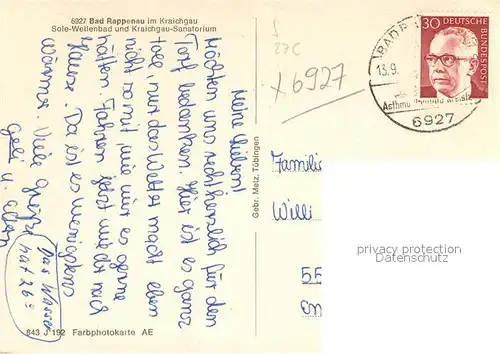 6927 Bad Rappenau im Kraichgau
Sole-Wellenbad und Kraichgau-Sanatorium
Meine Lieben!
Möchten uns recht herzlich für den
Torf bedanken. Hier ist es ganz
toll, nur das Wetter macht eben
nicht so mit, wie wir es gerne
hätten. Fahren jetzt wieder nach
Hause. Da ist es wenigstens
wärmer. Viele Grüße
Geli u. Eltern
Das Wasser
hat 26°
843 J 192 Farbphotokarte AE
Gebr. Metz, Tübingen
27C
x 6927
30 DEUTSCHE
BUNDESPOST
13.9.
6927
Familie
Willi
55
privacy protection
Datenschutz